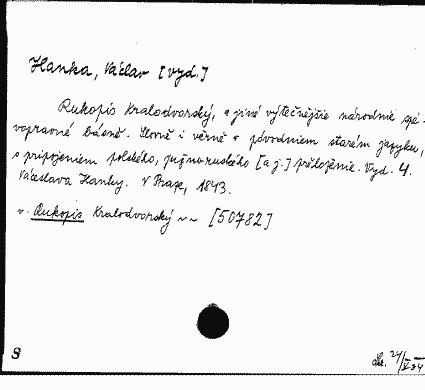 Hanka, Václav [vyd.]
Rukopis Kralodvorský, a jiné výtečnějšie národnie spě-
vopravné básně. Slovně i věrně v póvodniem starém jazyku,
s připojeniem polského, južnoruského [a j.] přeloženie. Vyd. 4.
Váceslava Hanky. V Praze, 1843.
v. Rukopis Kralodvorský ~~ [50782]
S
24/V